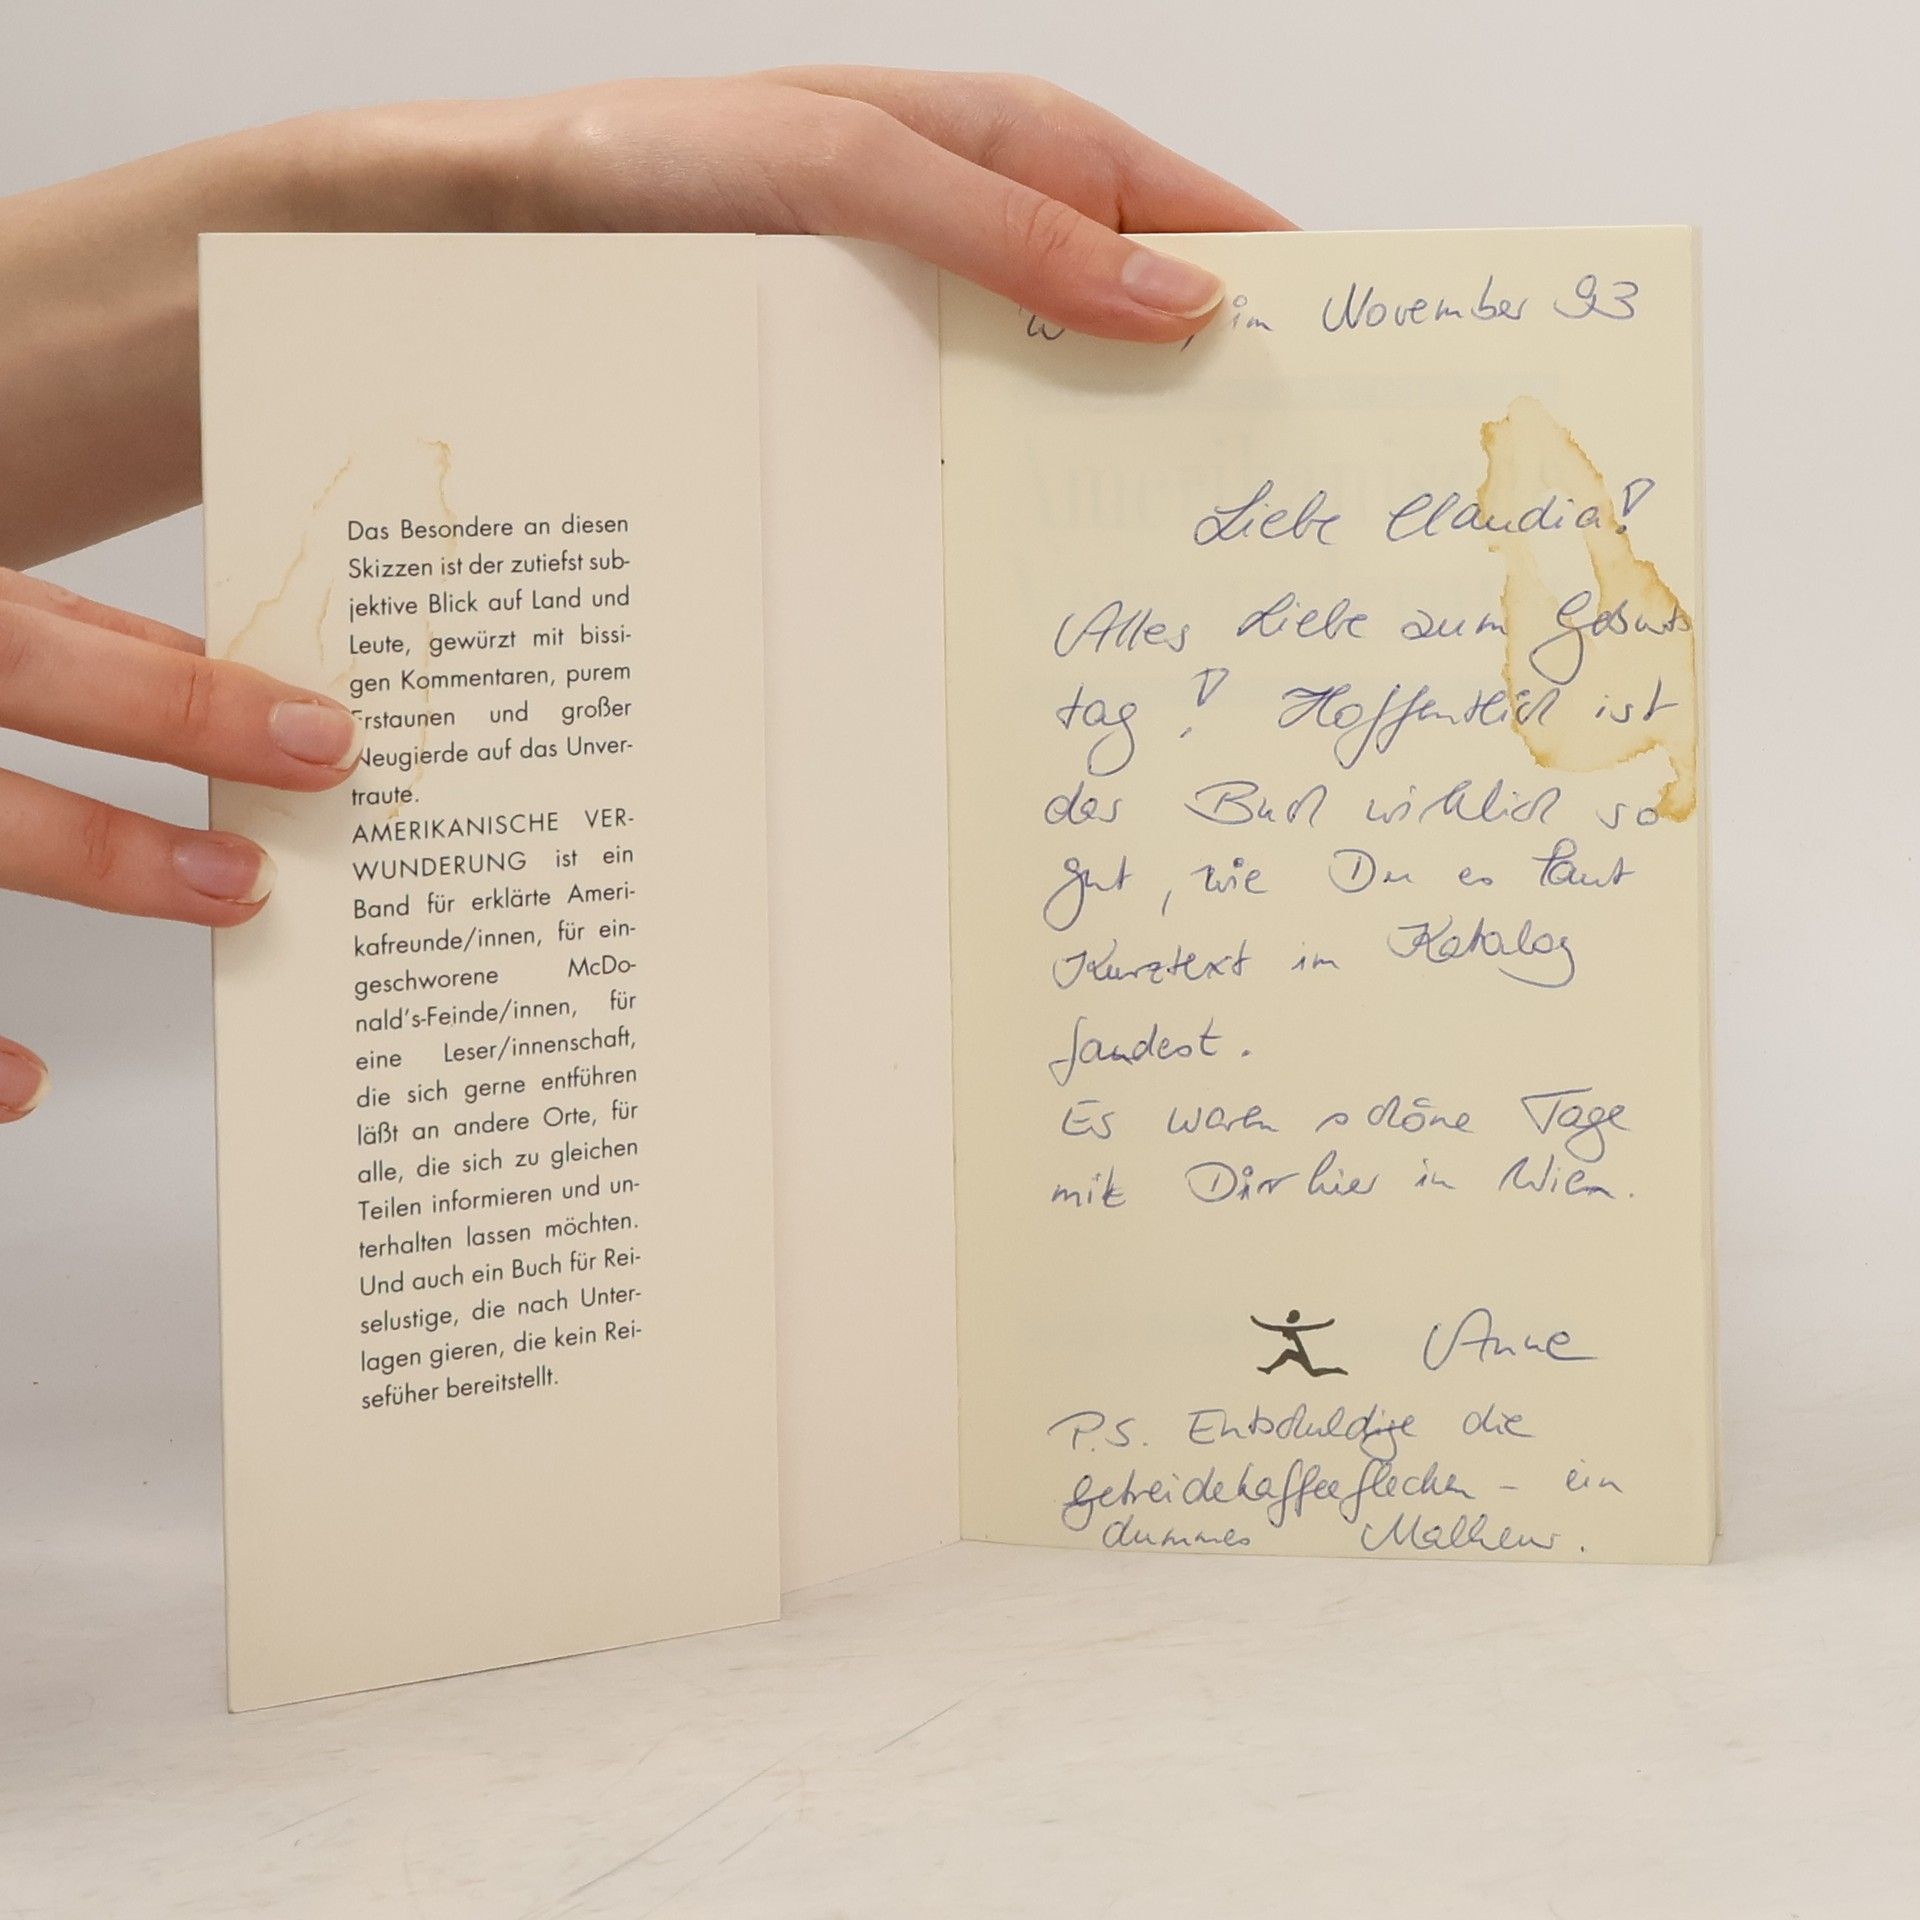 Das Besondere an diesen
Skizzen ist der zutiefst sub-
jektive Blick auf Land und
Leute, gewürzt mit bissi-
gen Kommentaren, purem
Erstaunen und großer
Neugierde auf das Unver-
traute.
AMERIKANISCHE VER-
WUNDERUNG ist ein
Band für erklärte Ameri-
kafreunde/innen, für ein-
geschworene McDo-
nald's-Feinde/innen, für
eine Leser/innenschaft,
die sich gerne entführen
läßt an andere Orte, für
alle, die sich zu gleichen
Teilen informieren und un-
terhalten lassen möchten.
Und auch ein Buch für Rei-
selustige, die nach Unter-
lagen gieren, die kein Rei-
sefüher bereitstellt.
im November 93
Liebe Claudia!
Alles Liebe zum Geburts
tag! Hoffentlich ist
das Buch wirklich so
gut, wie Du es laut
Kurztext im Katalog
fandest.
Es waren schöne Tage
mit Dir hier in Wien.
Anne
P.S. Entschuldige die
Getreidekaffeeflecken - ein
dummes Malheur.